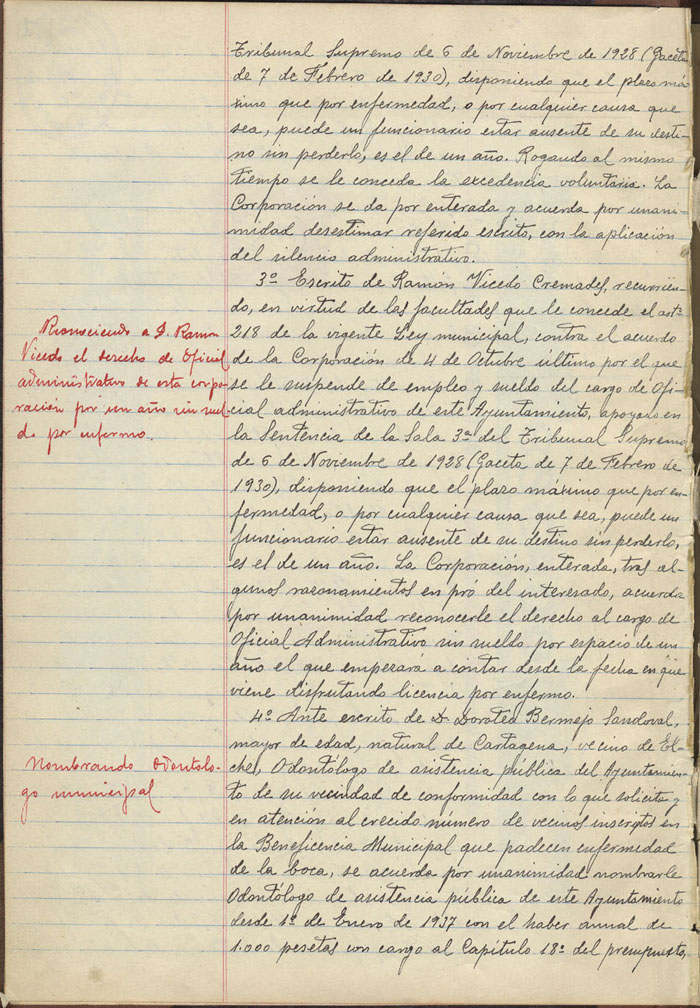 Tribunal Supremo de 6 de Noviembre de 1928 (Gaceta
de 7 de Febrero de 1930), disponiendo que el plazo má
ximo que por enfermedad, o por cualquier causa que
sea, puede un funcionario estar ausente de su desti-
no sin perderlo, es el de un año. Rogando al mismo
tiempo se le conceda la excedencia voluntaria. La
Corporación se da por enterada y acuerda por unani-
midad desestimar referido escrito, con la aplicación
del silencio administrativo.
3º Escrito de Ramón Vicedo Cremades, recurrien-
do, en virtud de las facultades que le concede el artº
218 de la vigente Ley municipal, contra el acuerdo
de la Corporación de 4 de Octubre último por el que
se le suspende de empleo y sueldo del cargo de Ofi-
cial administrativo de este Ayuntamiento, apoyado en
la Sentencia de la Sala 3ª del Tribunal Supremo
de 6 de Noviembre de 1928 (Gaceta de 7 de Febrero de
1930), disponiendo que el plazo máximo que por en-
fermedad, o por cualquier causa que sea, puede un
funcionario estar ausente de su destino sin perderlo,
es el de un año. La Corporación, enterada, tras al-
gunos razonamientos en pró del interesado, acuerda
por unanimidad reconocerle el derecho al cargo de
Oficial Administrativo sin sueldo por espacio de un
año el que empezará a contar desde la fecha en que
viene disfrutando licencia por enfermo.
Reconociendo a D. Ramon
Vicedo el derecho de Oficial
administrativo de esta corpo-
ración por un año sin suel-
do por enfermo.
4º Ante escrito de D. Doroteo Bermejo Sandoval,
mayor de edad, natural de Cartagena, vecino de El-
che, Odontólogo de asistencia pública del Ayuntamien-
to de su vecindad de conformidad con lo que solicita y
en atención al crecido número de vecinos inscriptos en
la Beneficencia Municipal que padecen enfermedad
de la boca, se acuerda por unanimidad nombrarle
Odontólogo de asistencia pública de este Ayuntamiento
desde 1º de Enero de 1937 con el haber anual de
1.000 pesetas con cargo al Capítulo 18º del presupuesto,
Nombrando Odontolo-
go municipal